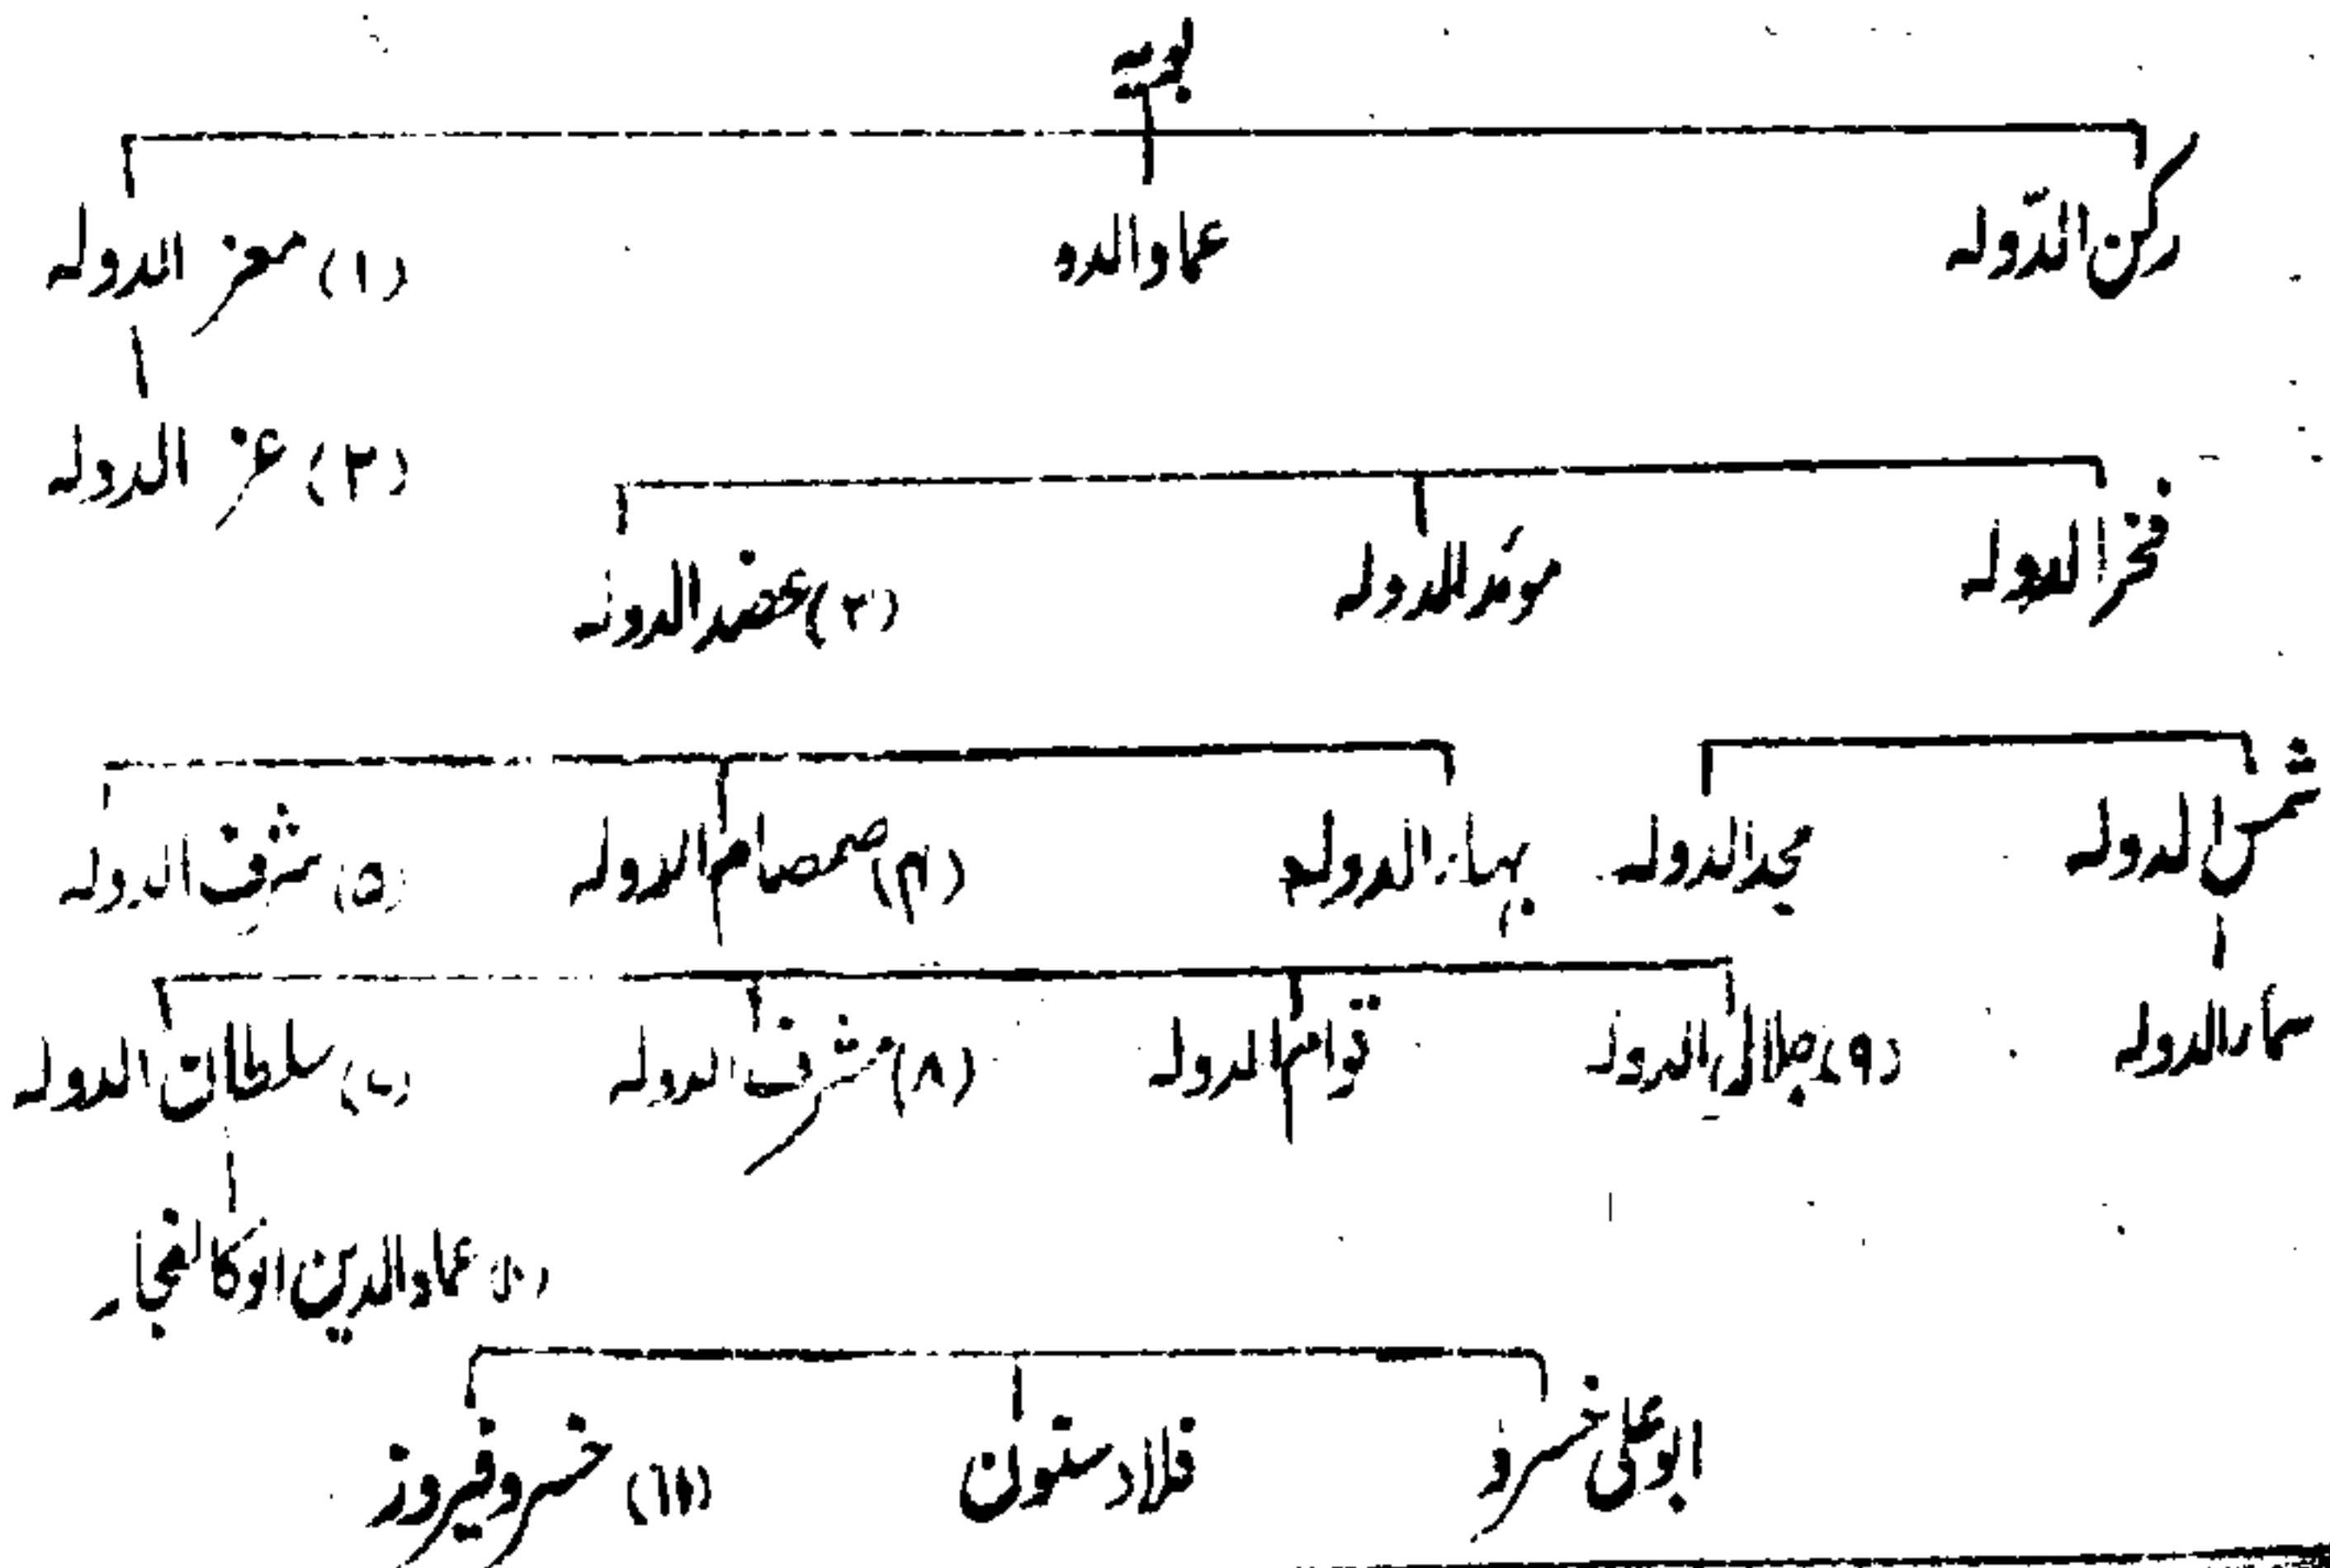 بویہ
رکن الدّولہ عماد الدو (۱) معز الدولہ
(۲) عز الدولہ
فخر الدولہ موئد الدولہ (۳) عضد الدولہ
شمس الدولہ مجد الدولہ بہاء الدولہ (۴) صمصام الدولہ (۵) شرف الدولہ
سماء الدولہ (۹) جلال الدولہ قوام الدولہ (۸) مشرف الدولہ (۷) سلطان الدولہ
(۱۰) عماد الدین ابوکالنجار
ابو علی خسرو فلاد ستون (۱۱) خسرو فیروز